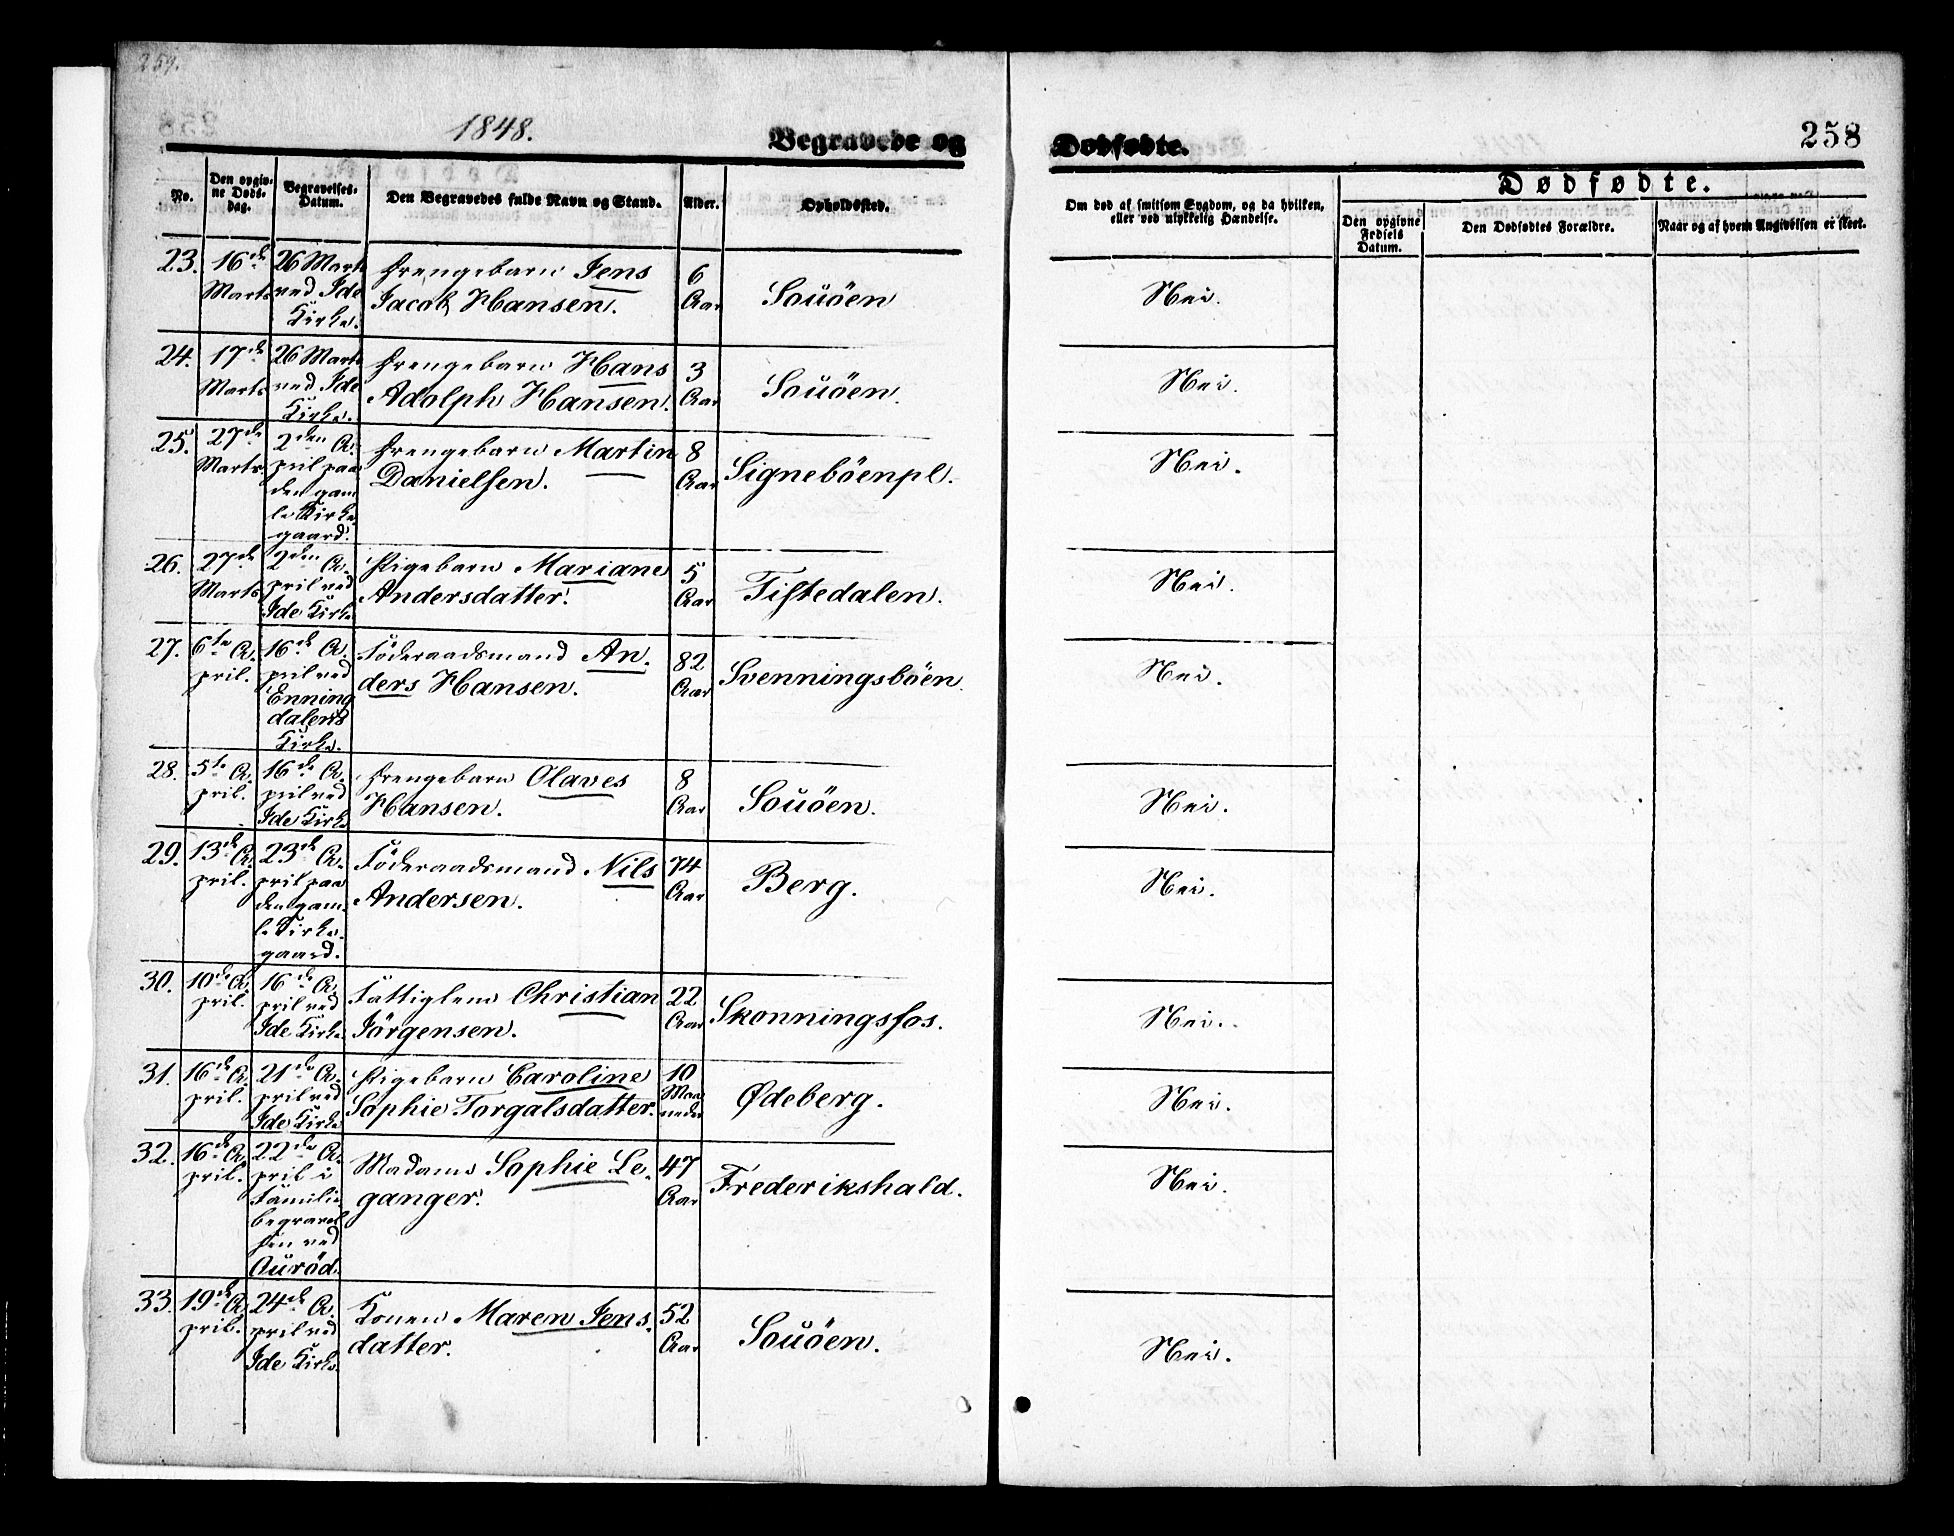 259.
1848.
Begravede og
Dødfødte.
258
No.
Den opgiv-
ne Døds-
dag.
Begravelses-
Datum.
Den Begravedes fulde Navn og Stand.
Alder.
Opholdssted.
Om død af smitsom Sygdom, og da hvilken,
eller ved ulykkelig Hændelse.
Dødfødte.
Den opgivne
Fødsels
Datum.
Den Dødfødtes Forældre.
Naar og af hvem Angivelsen er skeet.
23.
16de
Marts
26 Marts
ved Ide
Kirke.
Drengebarn Jens
Jacob Hansen.
6
Aar
Souöen
Nei.
24.
17de
Marts
26 Marts
ved Ide
Kirke.
Drengebarn Hans
Adolph Hansen.
3
Aar
Souöen.
Nei.
25.
27de
Marts.
2den A-
pril paa
den gam
le Kirke
gaard.
Drengebarn Martin
Danielsen.
8
Aar
Signeböenpl.
Nei.
26.
27de
Marts
2den A-
pril ved
Ide Kirke
Pigebarn Mariane
Andersdatter.
5
Aar
Tistedalen.
Nei.
27.
6te A-
pril.
16de A-
pril ved
Enning
dalens
Kirke.
Föderaadsmand An-
ders Hansen.
82
Aar
Svenningsböen.
Nei.
28.
5te A-
pril.
16de A-
pril ved
Ide Kirke
Drengebarn Olaves
Hansen.
8
Aar
Souöen.
Nei.
29.
13de A-
pril.
23de A-
pril paa
den gam-
le Kirke-
gaard.
Föderaadsmand Nils
Andersen.
74
Aar
Berg.
Nei.
30.
10de A-
pril.
16de A-
pril ved
Ide Kirke.
Fattiglem Christian
Jörgensen.
22
Aar
Skonningsfos.
Nei.
31.
16de A-
pril.
21de A-
pril ved
Ide Kirke
Pigebarn Caroline
Sophie Torgalsdatter.
10
Maa
neder
Ødeberg.
Nei.
32.
16de A-
pril.
22de A-
pril i
Familie
begravel
sen ved
Auröd.
Madame Sophie Le-
ganger.
47
Aar
Frederikshald.
Nei.
33.
19de A-
pril.
24de A-
pril ved
Ide Kirke.
Konen Maren Jens-
datter.
52
Aar
Souöen.
Nei.